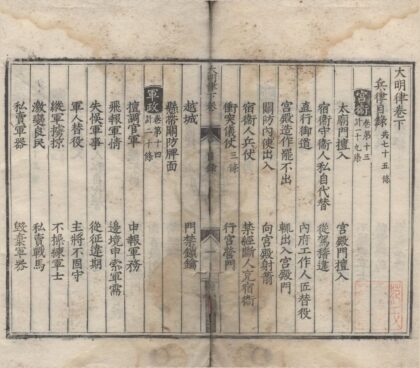 大明律卷下
兵律目錄 共七十五條
宮衛 卷第十三 計一十九條
太廟門擅入
宮殿門擅入
宿衛守衛人私自代替
從駕稽違
直行御道
內府工作人匠替役
宮殿造作罷不出
輒出入宮殿門
關防內使出入
向宮殿射箭
宿衛人兵仗
禁經斷人充宿衛
衝突儀仗 三條
行宮營門
大明律下卷
目錄
越城
門禁鎖鑰
懸帶關防牌面
軍政 卷第十四 計二十條
擅調官軍
申報軍務
飛報軍情
邊境申索軍需
失悞軍事
從征違期
軍人替役
主將不固守
縱軍擄掠
不操練軍士
激變良民
私賣戰馬
私賣軍器
毀棄軍器